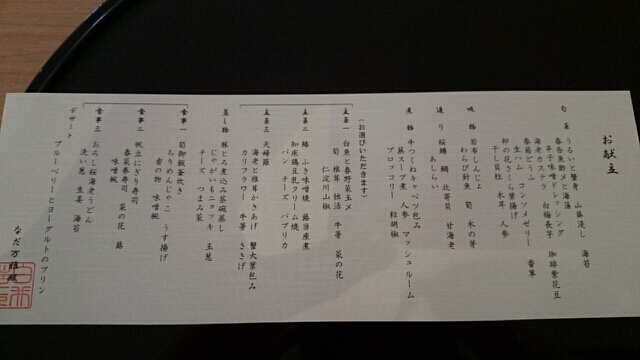 お献立
旬菜 うるいと蟹身 山葵浸し 海苔
春子魚酢〆と海藻
辛子味噌ドレッシング 珈琲紫花豆
海老カステラ 白梅長芋
春菊どうふ コンソメゼリー
生ハム 香草
卯の花さくら葉揚げ
干し貝柱 木耳 人参
吸物 若布しんじょ
わらび 針魚 筍 木の芽
造り 桜鯛 鯛 北寄貝 甘海老
あしらい
煮物 牛つくねキャベツ包み
蕪スープ煮 人参 マッシュルーム
ブロッコリー 粒胡椒
(お選びいただきます)
主菜一 白魚と春野菜玉〆
筍 椎茸 独活 牛蒡 菜の花
仁淀川山椒
主菜二 鰆 ふき味噌焼 蕗当座煮
知床鶏豆乳クリーム焼
パン チーズ パプリカ
主菜三 天婦羅
海老と椎茸かきあげ 蟹大葉包み
カリフラワー 牛蒡 ささげ
蒸し物 豚とろ煮込み茶碗蒸し
じゃがいもニョッキ 玉葱
チーズ つまみ菜
食事一 筍御飯釜炊き
ちりめんじゃこ うす揚げ
香の物 味噌椀
食事二 帆立にぎり寿司
春菜巻寿司 菜の花 蕗
味噌椀
食事三 おろし桜海老うどん
洗い葱 生姜 海苔
デザート
ブルーベリーとヨーグルトのプリン
なだ万雅殿